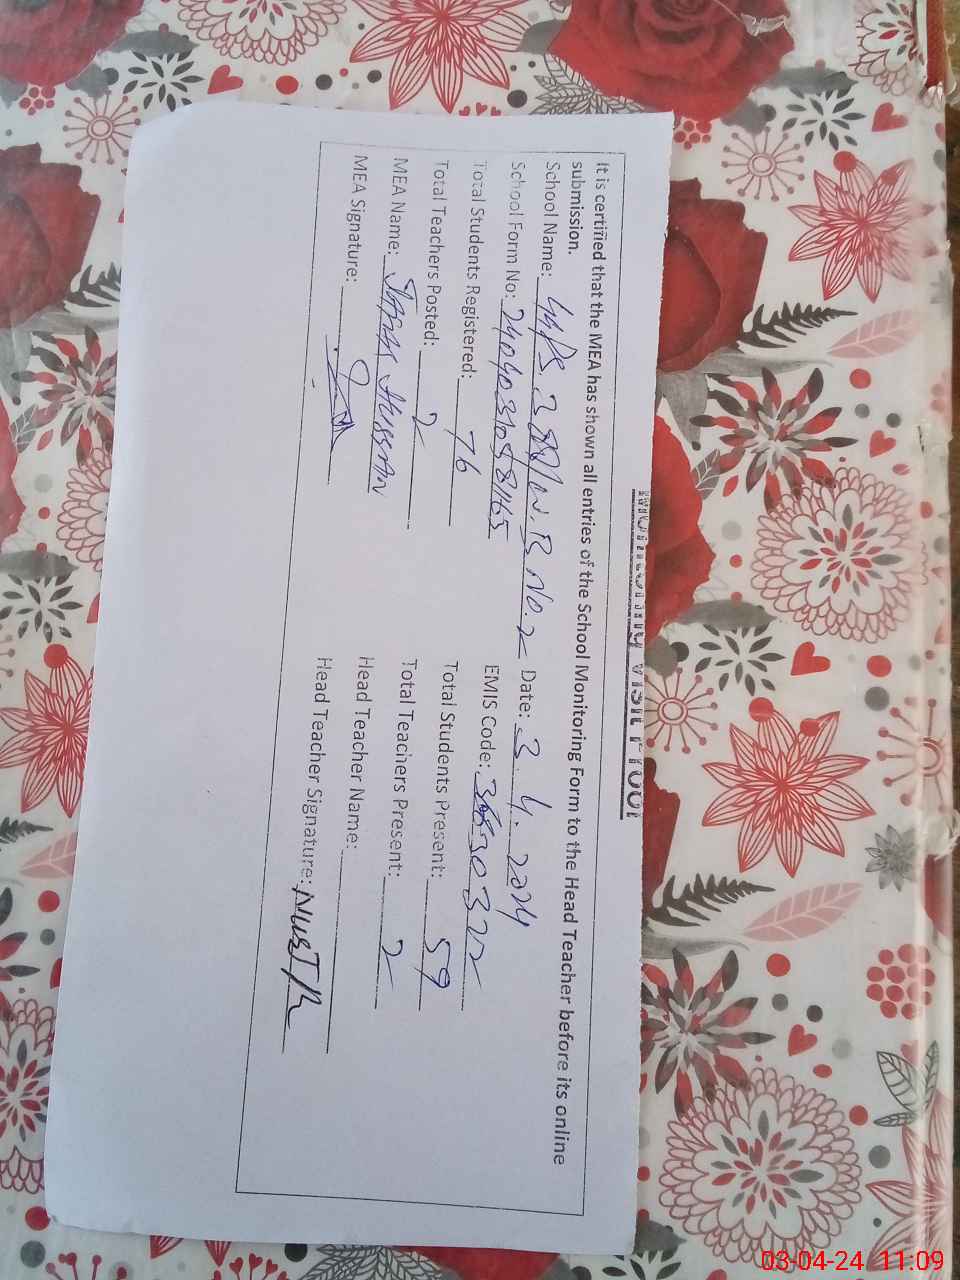 Monitoring Visit Proof
It is certified that the MEA has shown all entries of the School Monitoring Form to the Head Teacher before its online
submission.
School Name: No. 2 Date: 3.4.2024
School Form No: EMIS Code:
Total Students Registered: 76 Total Students Present: 59
Total Teachers Posted: 2 Total Teachers Present: 2
MEA Name: Hussan Head Teacher Name:
MEA Signature: Head Teacher Signature:
03-04-24 11:09